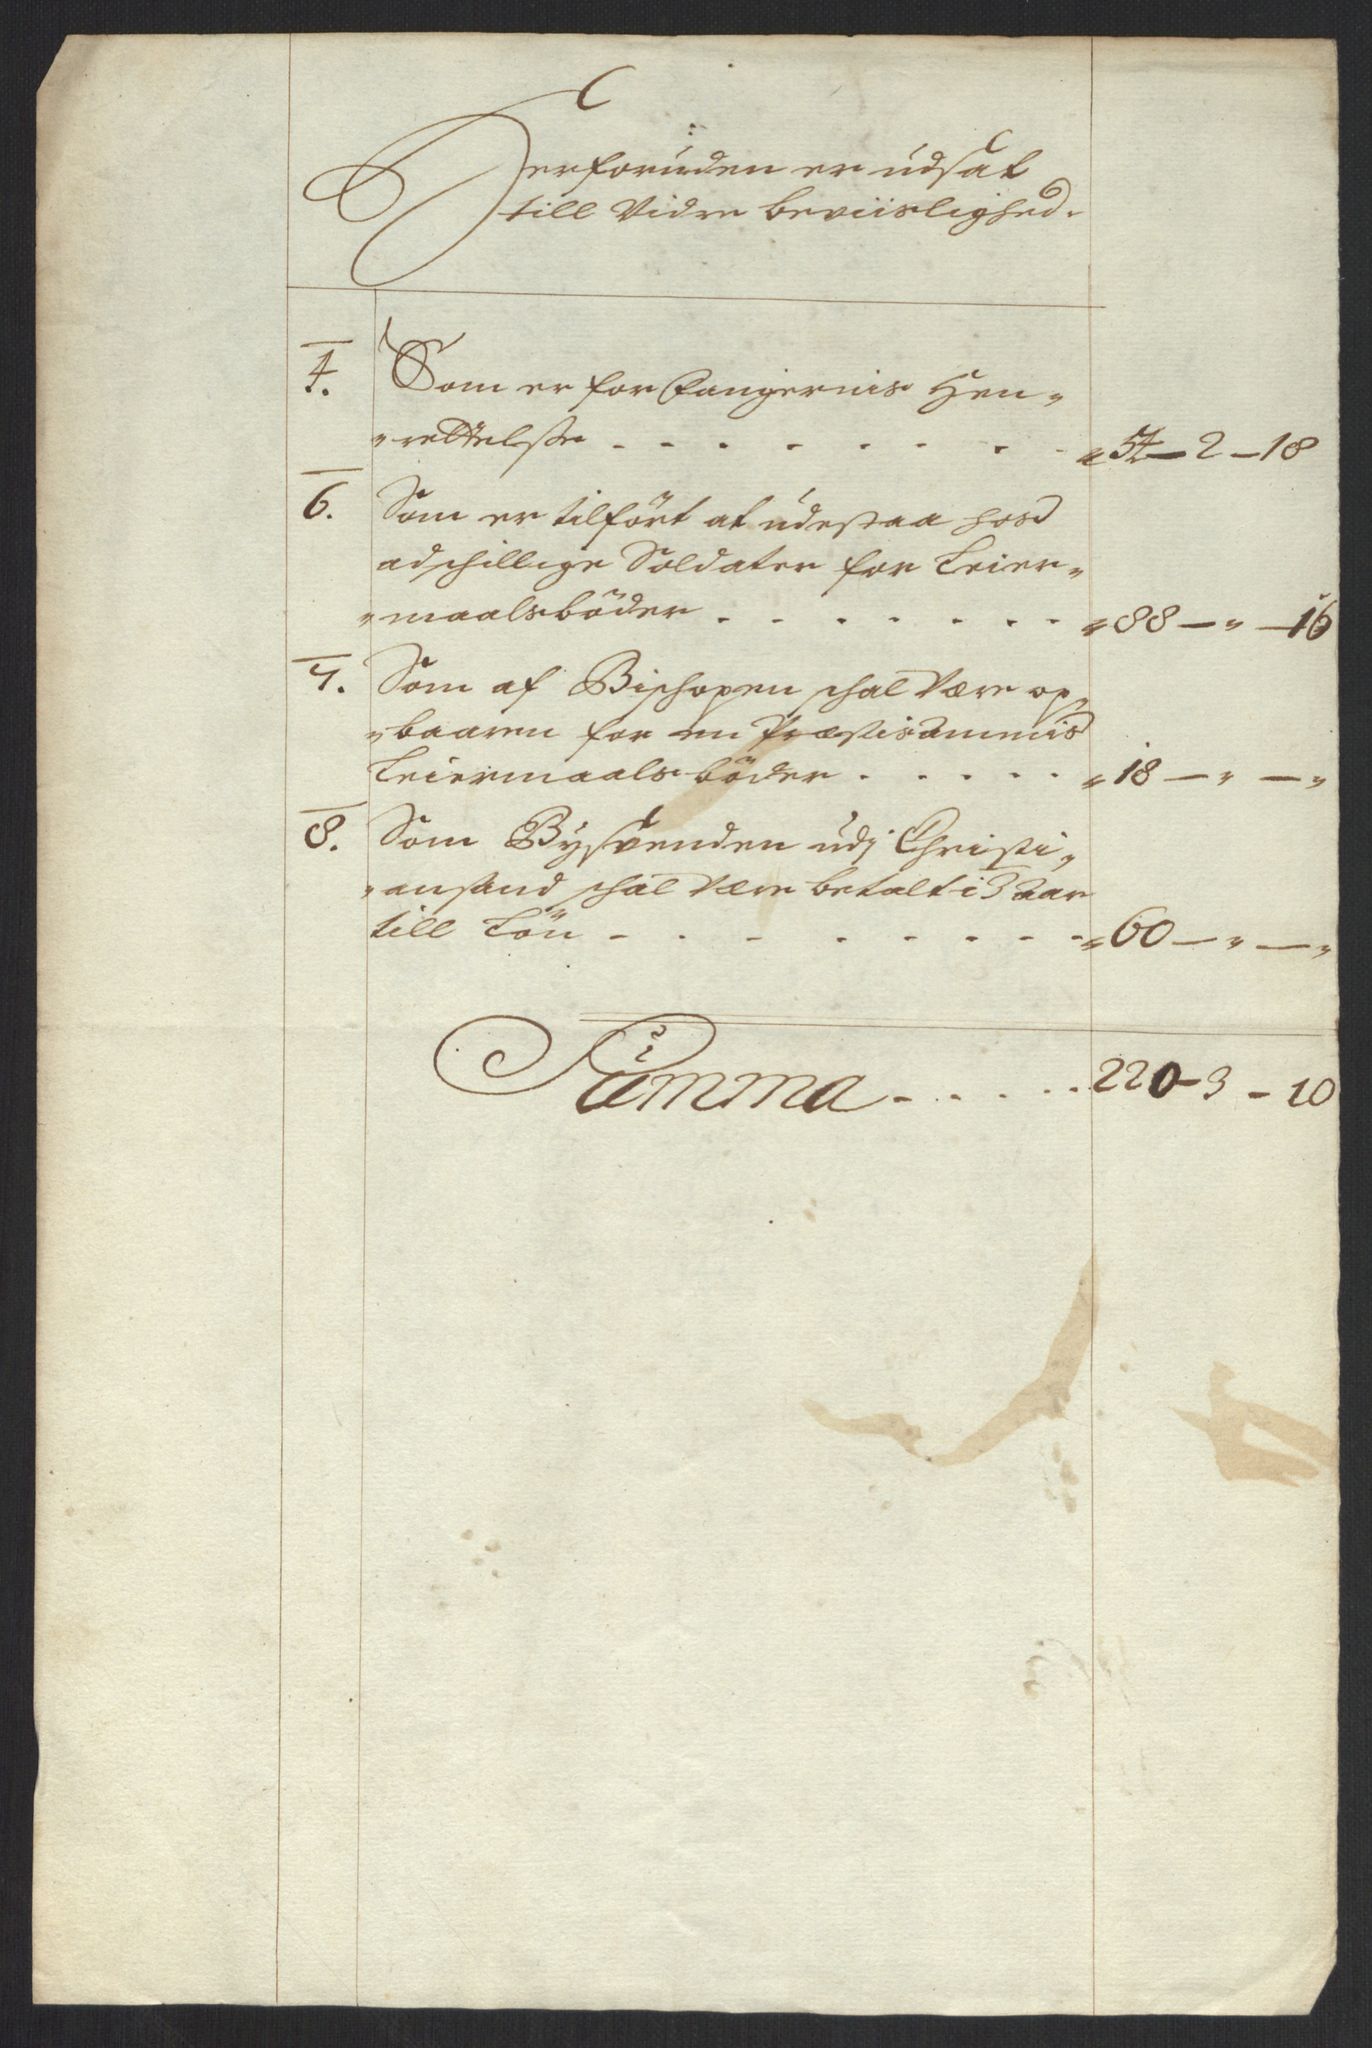 Herforuden er udsat
till Vidre beviislighed.
4. Som er for Fangernis Hen„
„rettelsse . . . . . . . „54 — 2 — 18
6. Som er tilført at udestaa hoss
adschillige Soldater for Leier„
„maalsbøder . . . . . . . „88 — „ — 16
7. Som af Bischopen schal Være op„
„baaren for en Præstis ammis
Leiermaals bøder . . . . . „18 — „ — „
8. Som Bysvenden udj Christi„
„ansand schal Være betalt i 3 aar
till Løn . . . . . . . . „60 — „ — „
Summa . . . . . 220 — 3 — 10